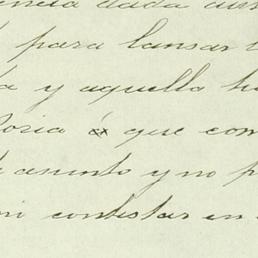 dada
para lansar
y aquella
que com
asunto y no p
contestar en